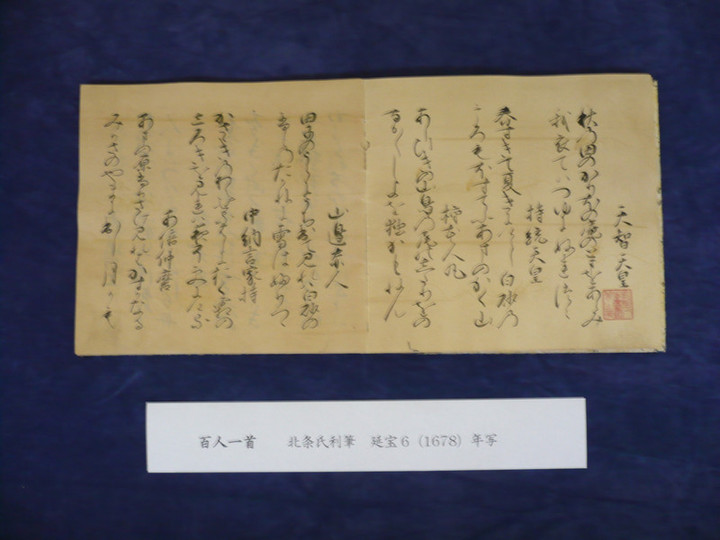 天智天皇
秋の田のかりほの庵のとまをあらみ
我衣てはつゆにぬれつゝ
持統天皇
春過て夏きにけらし白妙の
ころもほすてふあまのかく山
柿本人丸
あしひきの山鳥の尾のしたりをの
なか〳〵し夜を独かもねん
山邊赤人
田子のうらにうち出て見れは白妙の
富士のたかねに雪はふりつゝ
中納言家持
かさゝきのわたせるはしにおく霜の
しろきを見れは夜そふけにける
安倍仲麿
あまの原ふりさけ見れはかすかなる
みかさのやまに出し月かも
百人一首 北条氏利筆 延宝6(1678)年写